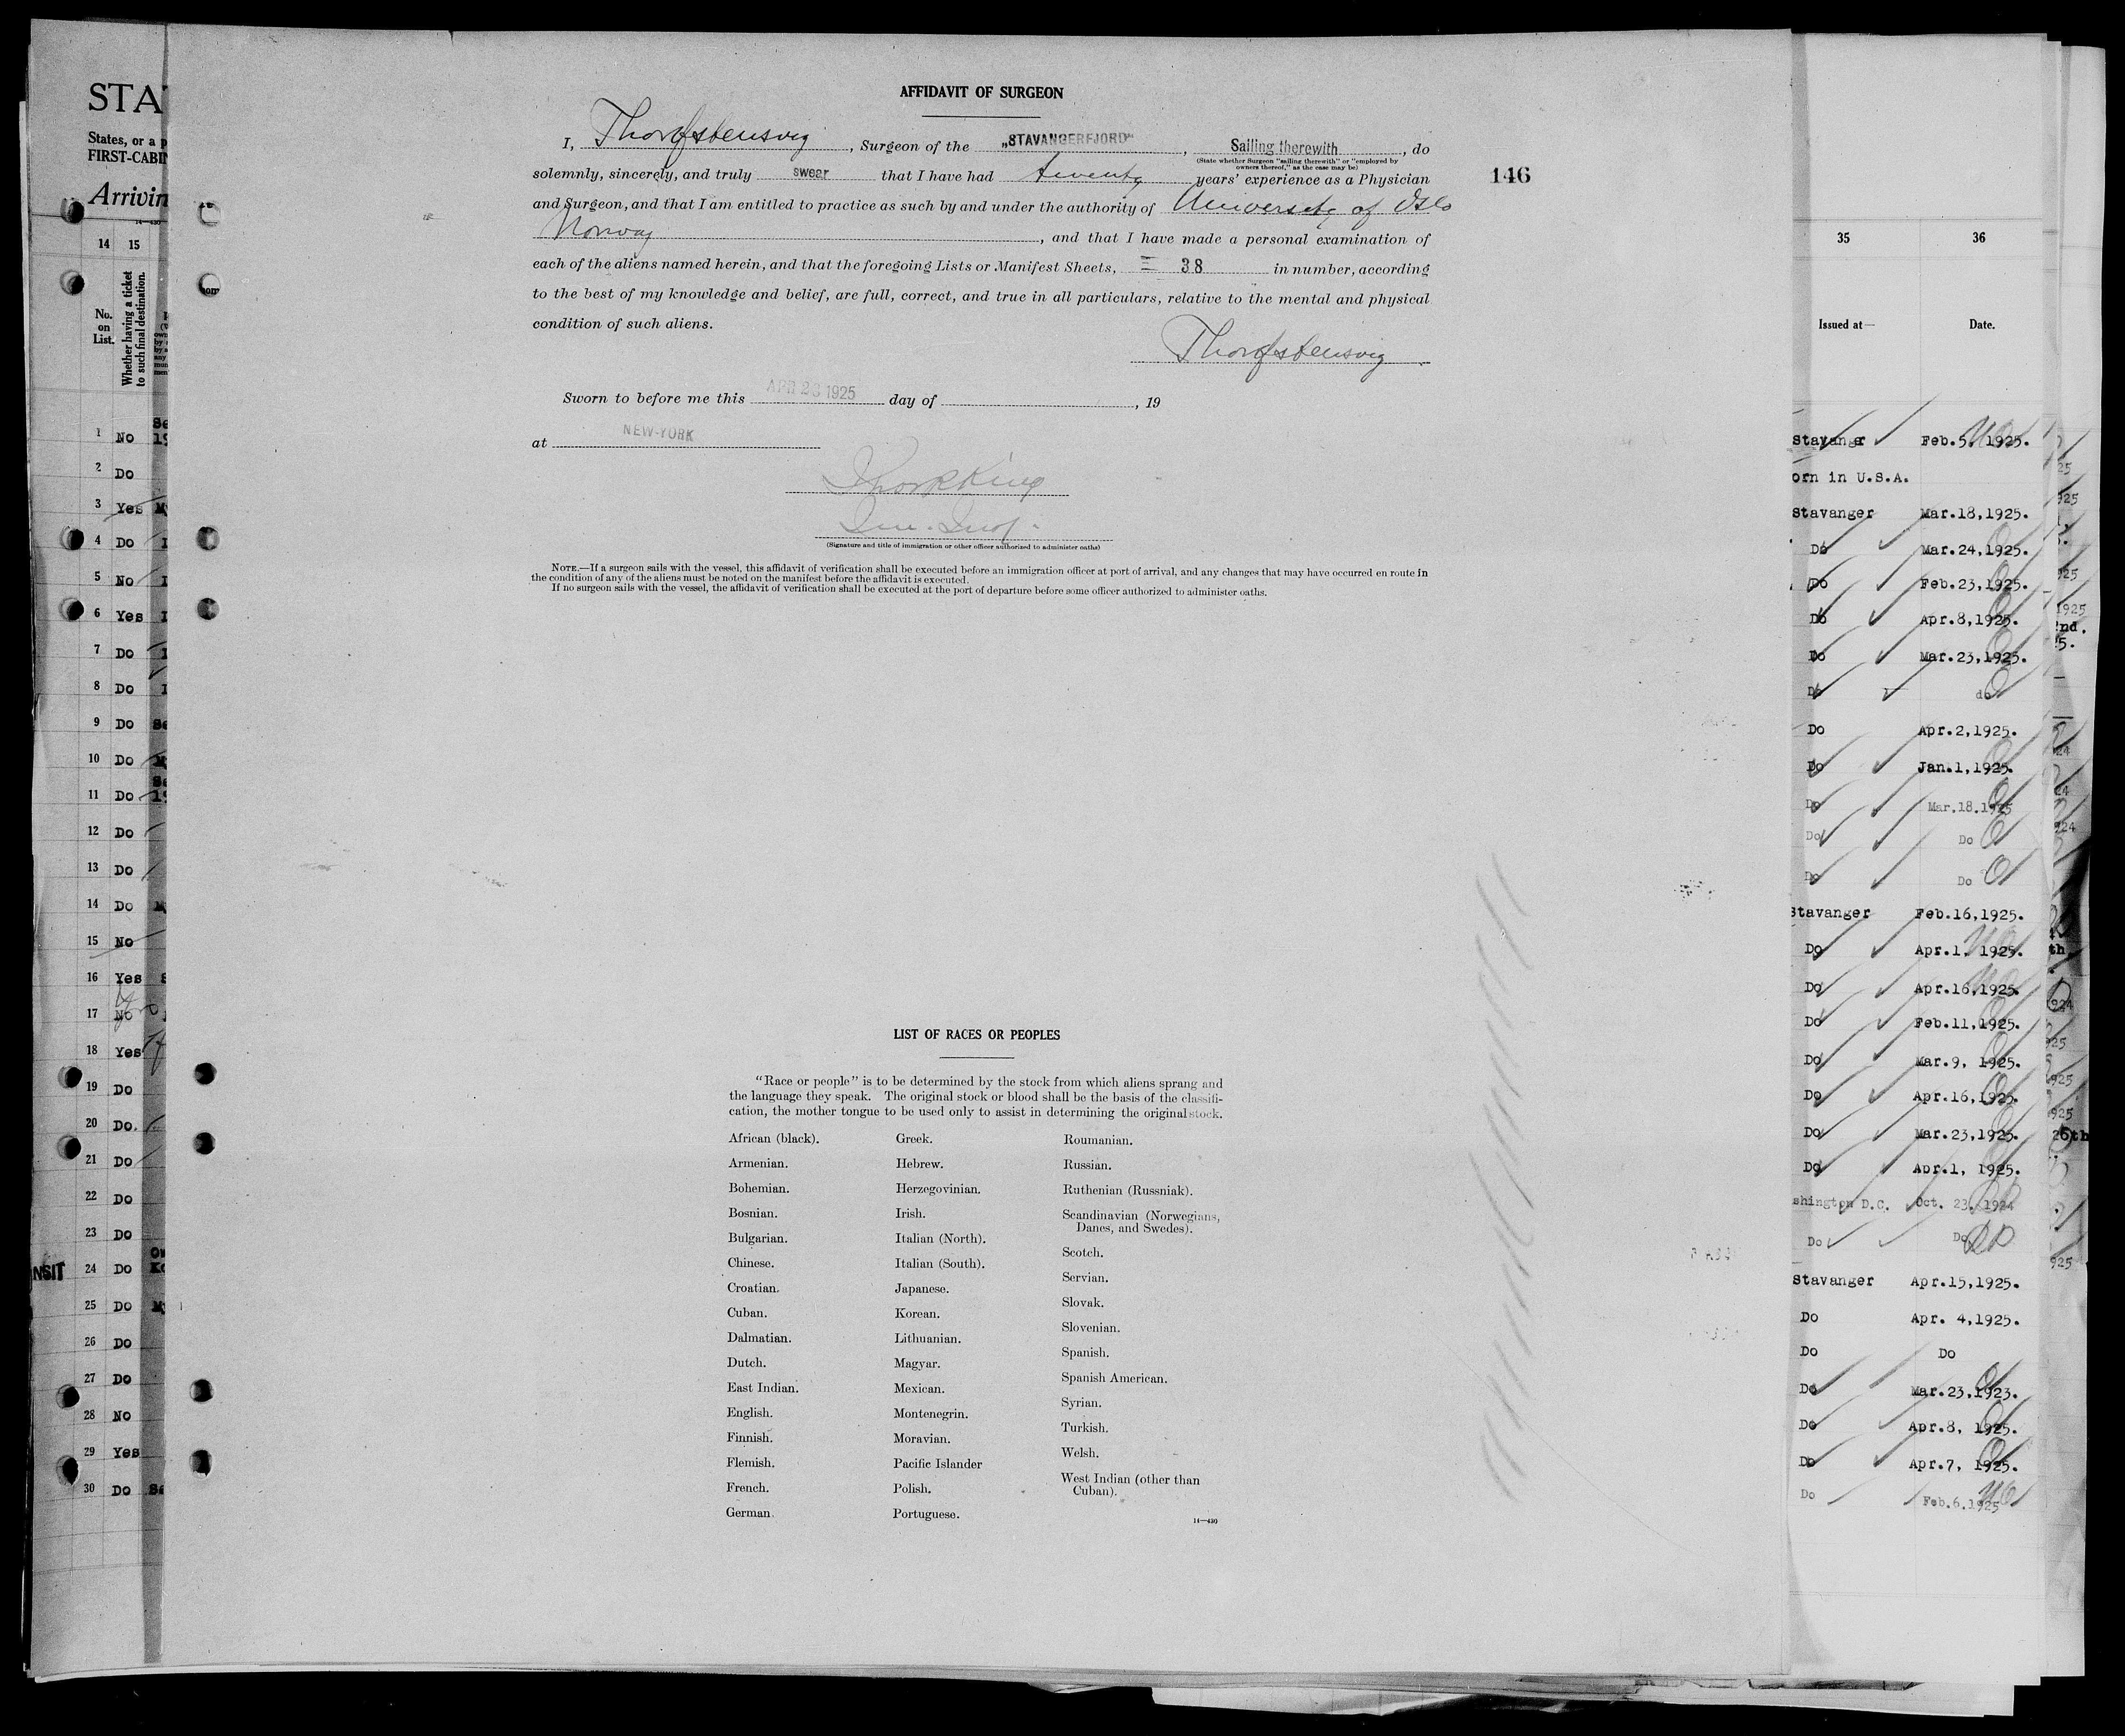 STA
States, or a p
FIRST-CABI
Arrivin
14 15
No. on List.
Whether having a ticket to such final destination.
1 No
2 Do
3 Yes
4 Do
5 No
6 Yes
7 Do
8 Do
9 Do
10 Do
11 Do
12 Do
13 Do
14 Do
15 No
16 Yes
17 No
18 Yes
19 Do
20 Do.
21 Do
22 Do
23 Do
NSIT 24 Do
25 Do
26 Do
27 Do
28 No
29 Yes
30 Do
AFFIDAVIT OF SURGEON
I, , Surgeon of the „STAVANGERFJORD", Sailing therewith, do
(State whether Surgeon "sailing therewith" or "employed by
owners thereof," as the case may be)
146
solemnly, sincerely, and truly swear that I have had twenty years' experience as a Physician
and Surgeon, and that I am entitled to practice as such by and under the authority of University of Oslo
Norway, and that I have made a personal examination of
each of the aliens named herein, and that the foregoing Lists or Manifest Sheets, = 38 in number, according
to the best of my knowledge and belief, are full, correct, and true in all particulars, relative to the mental and physical
condition of such aliens.
Sworn to before me this APR 26 1925 day of , 19
at NEW-YORK
(Signature and title of immigration or other officer authorized to administer oaths)
NOTE.—If a surgeon sails with the vessel, this affidavit of verification shall be executed before an immigration officer at port of arrival, and any changes that may have occurred en route in
the condition of any of the aliens must be noted on the manifest before the affidavit is executed.
If no surgeon sails with the vessel, the affidavit of verification shall be executed at the port of departure before some officer authorized to administer oaths.
LIST OF RACES OR PEOPLES
"Race or people" is to be determined by the stock from which aliens sprang and
the language they speak. The original stock or blood shall be the basis of the classifi-
cation, the mother tongue to be used only to assist in determining the original stock.
African (black).
Armenian.
Bohemian.
Bosnian.
Bulgarian.
Chinese.
Croatian.
Cuban.
Dalmatian.
Dutch.
East Indian.
English.
Finnish.
Flemish.
French.
German.
Greek.
Hebrew.
Herzegovinian.
Irish.
Italian (North).
Italian (South).
Japanese.
Korean.
Lithuanian.
Magyar.
Mexican.
Montenegrin.
Moravian.
Pacific Islander
Polish.
Portuguese.
Roumanian.
Russian.
Ruthenian (Russniak).
Scandinavian (Norwegians,
Danes, and Swedes).
Scotch.
Servian.
Slovak.
Slovenian.
Spanish.
Spanish American.
Syrian.
Turkish.
Welsh.
West Indian (other than
Cuban).
14—430
35 36
Issued at— Date.
Stavanger Feb.5, 1925.
orn in U.S.A.
Stavanger Mar.18,1925.
Do Mar.24,1925.
Do Feb.23,1925.
Do Apr.8,1925.
Do Mar.23,1925.
Do do
Do Apr.2,1925.
Do Jan.1,1925.
Do Mar.18.1925
Do Do
Do Do
Stavanger Feb.16,1925.
Do Apr.1, 1925.
Do Apr.16,1925.
Do Feb.11,1925.
Do Mar.9, 1925.
Do Apr.16,1925.
Do Mar.23,1925.
Do Apr.1, 1925.
shington D.C. Oct. 23, 1924
Do Do
Stavanger Apr.15,1925.
Do Apr. 4,1925.
Do Do
Do Mar.23,1923.
Do Apr.8, 1925.
Do Apr.7, 1925.
Do Feb.6.1925